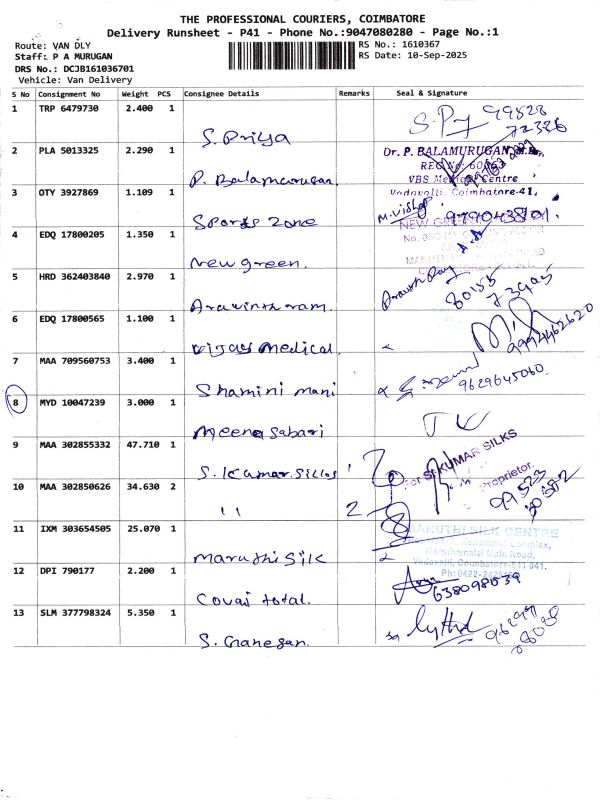 THE PROFESSIONAL COURIERS, COIMBATORE
Delivery Runsheet - P41 - Phone No.:9047080280 - Page No.:1
Route: VAN DLY
Staff: P A MURUGAN
DRS No.: DCJB161036701
Vehicle: Van Delivery
RS No.: 1610367
RS Date: 10-Sep-2025
S No Consignment No Weight PCS Consignee Details Remarks Seal & Signature
1 TRP 6479730 2.400 1
S. Priya
2 PLA 5013325 2.290 1
P. Balamurugan.
Dr. P. BALAMURUGAN,
VBS Medical Centre
Vadavalli, Coimbatore-41,
3 OTY 3927869 1.109 1
Sports zone
4 EDQ 17800205 1.350 1
New green.
NEW GREEN
5 HRD 362403840 2.970 1
Aravinth ram.
80155
73905
6 EDQ 17800565 1.100 1
vijay medical.
9994462620
7 MAA 709560753 3.400 1
Shamini mani
9629645060
8 MYD 10047239 3.000 1
Meena Sabari
9 MAA 302855332 47.710 1
S. Kumar. Silks 1
For S.KUMAR SILKS
Proprietor.
10 MAA 302850626 34.630 2
'' 2
11 IXM 303654505 25.070 1
Maruthi Silk
MARUTHI SILK CENTRE
Maruthamalai Main Road,
Vadavalli, Coimbatore-641 041.
12 DPI 790177 2.200 1
Covai total.
638098039
13 SLM 377798324 5.350 1
S. Ganesan.